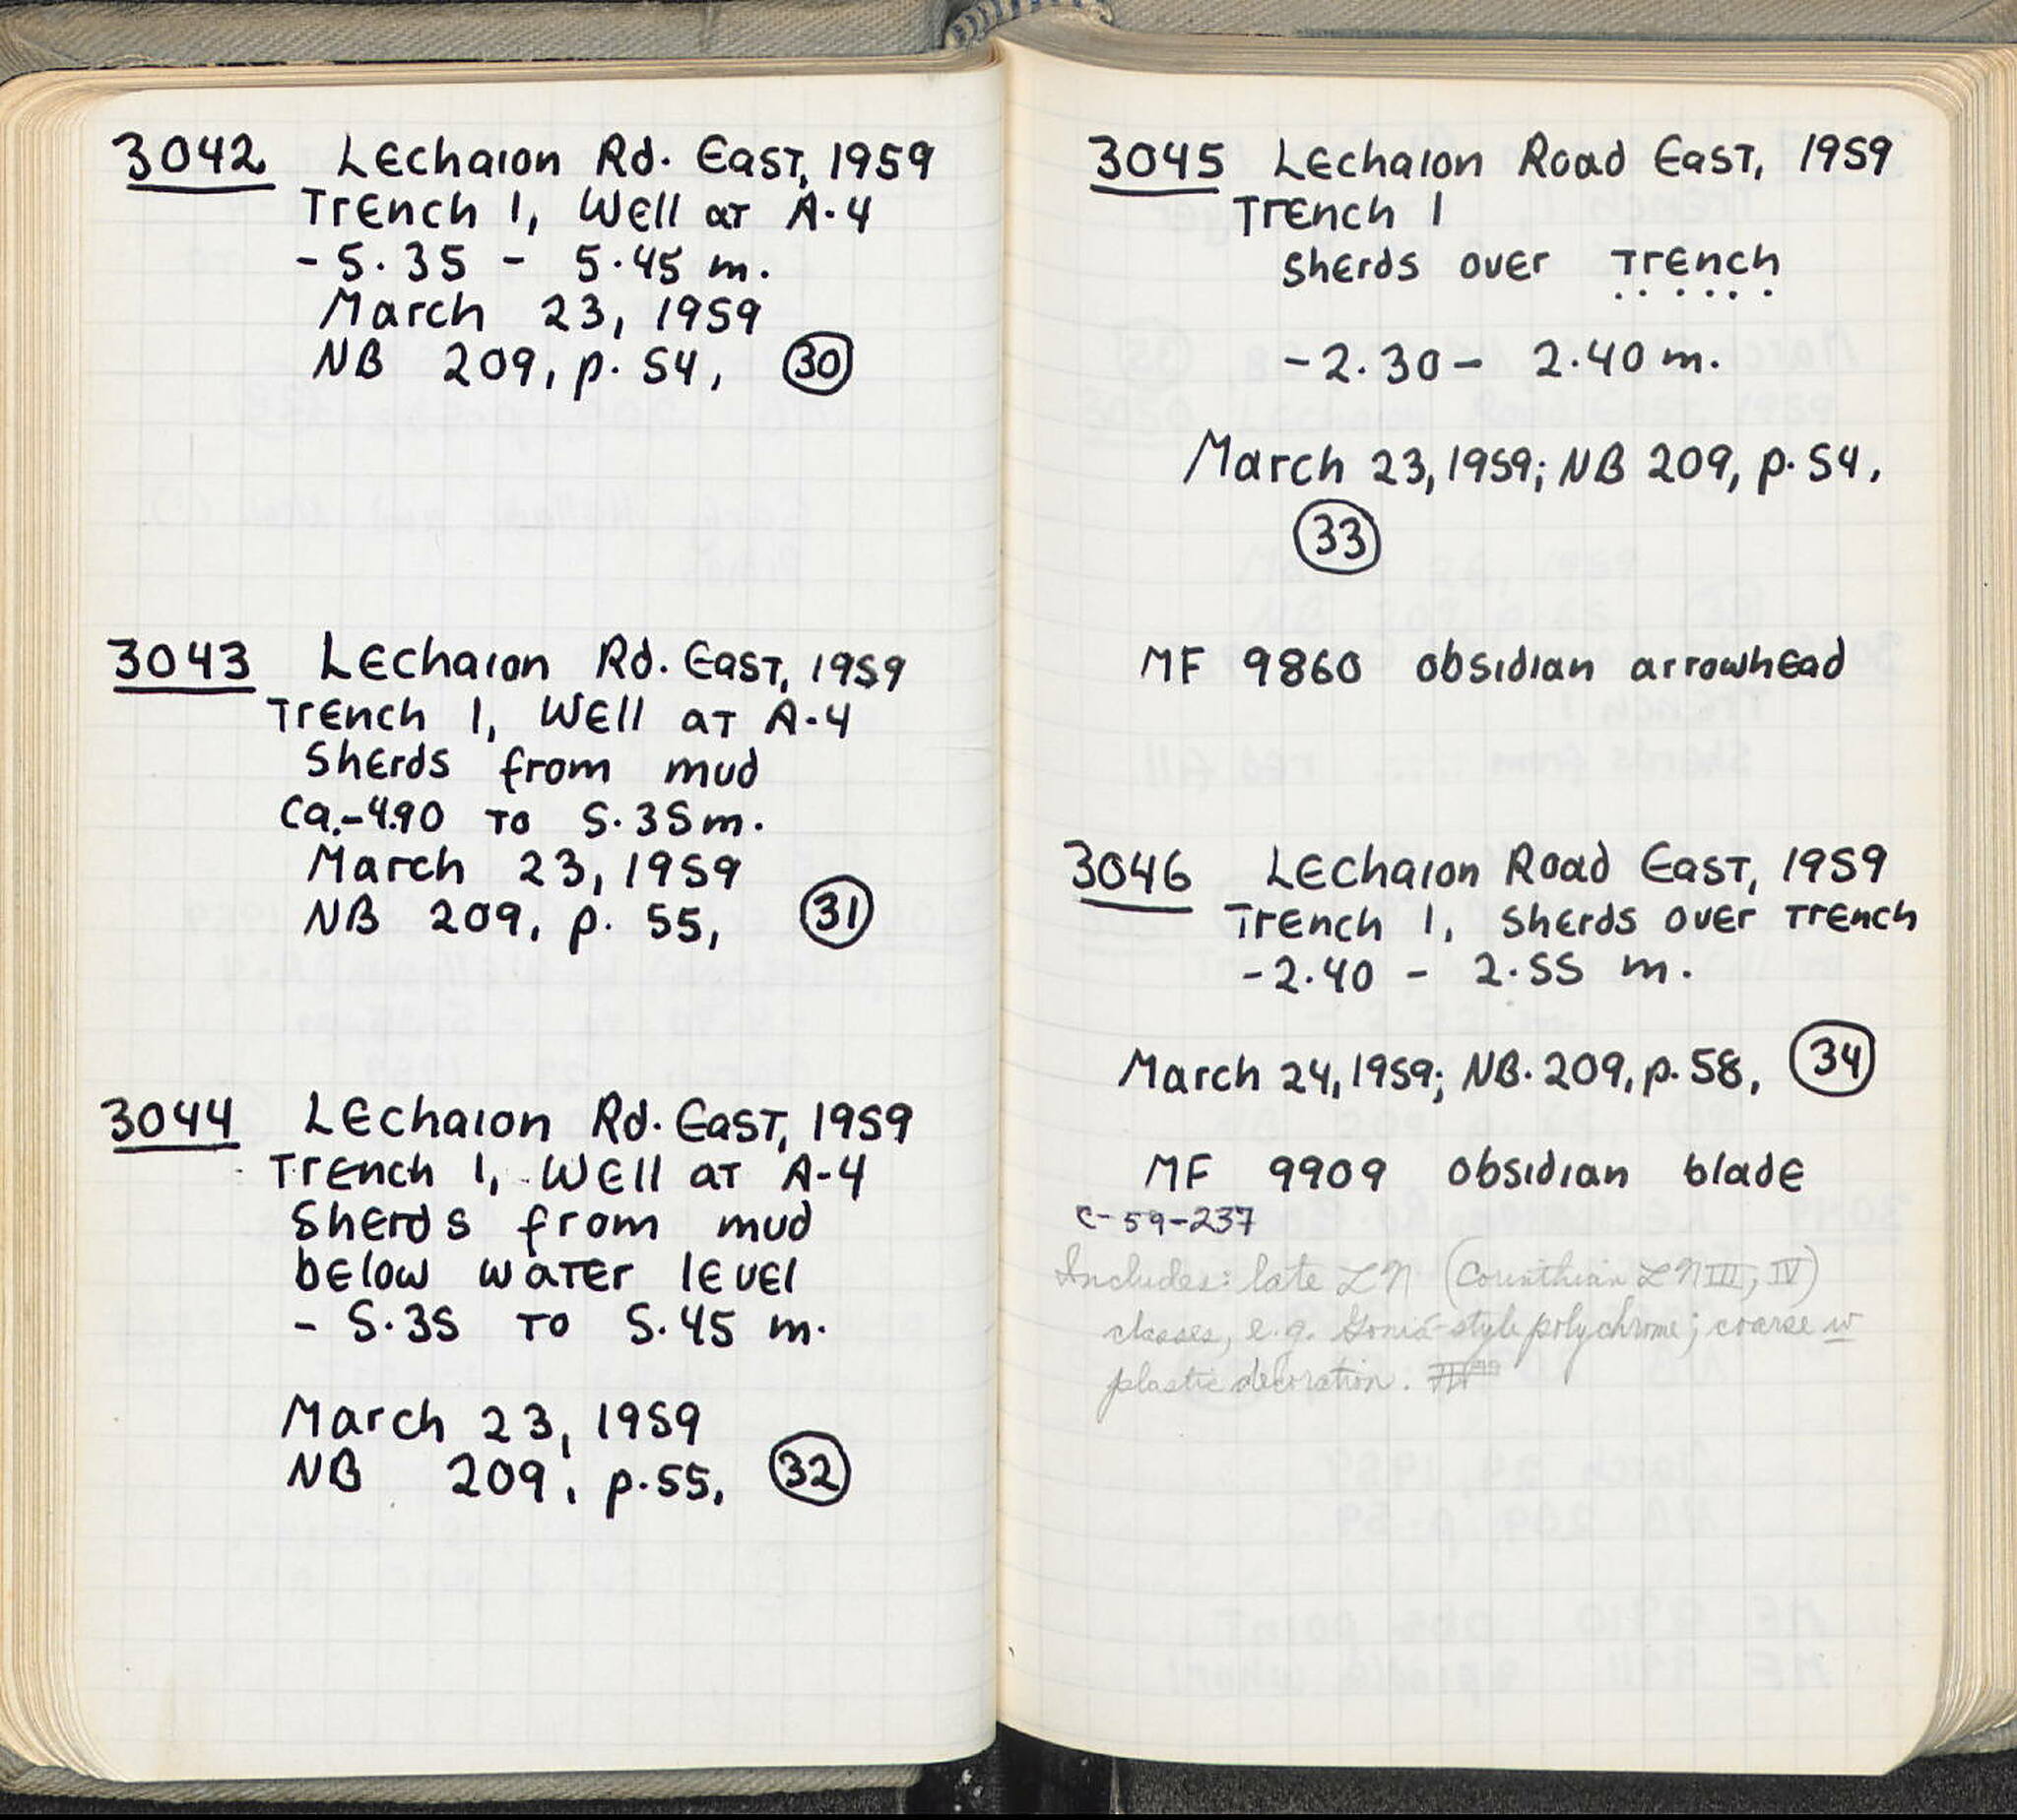 3042 Lechaion Rd. East, 1959
Trench 1, Well at A-4
-5.35 - 5.45 m.
March 23, 1959
NB 209, p. 54, 30
3043 Lechaion Rd. East, 1959
Trench 1, Well at A-4
Sherds from mud
Ca.-4.90 to 5.35m.
March 23, 1959
NB 209, p. 55, 31
3044 Lechaion Rd. East, 1959
Trench 1, Well at A-4
Sherds from mud
below water level
- 5.35 to 5.45 m.
March 23, 1959
NB 209, p.55, 32
3045 Lechaion Road East, 1959
Trench 1
Sherds over Trench
-2.30- 2.40m.
March 23, 1959; NB 209, p.54,
33
MF 9860 obsidian arrowhead
3046 Lechaion Road East, 1959
Trench 1, Sherds over Trench
-2.40 - 2.55 m.
March 24, 1959; NB. 209, p.58, 34
MF 9909 obsidian blade
C-59-237
Includes: late LN (Corinthian LN III, IV)
classes, e.g. Gonia-style polychrome; coarse w
plastic decoration.